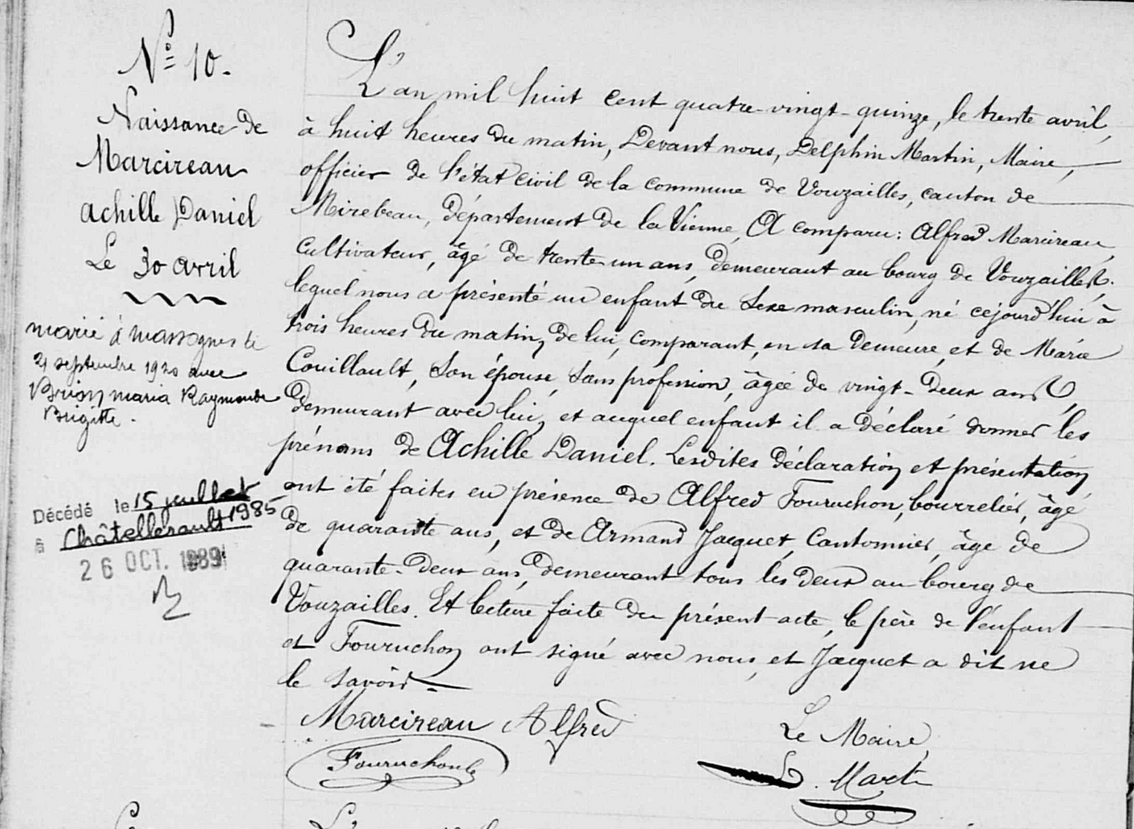 N° 10.
Naissance de
Marcireau
Achille Daniel
Le 30 avril
marié à massognes le
21 septembre 1920 avec
Brion maria Raymonde
Brigitte.
Décédé le 15 juillet
à Châtellerault 1985
26 OCT. 1989
L'an mil huit cent quatre-vingt-quinze, le trente avril,
à huit heures du matin, Devant nous, Delphin Martin, Maire,
officier de l'état civil de la commune de Vouzailles, canton de
Mirebeau, département de la Vienne, A comparu: Alfred Marcireau,
cultivateur, âgé de trente un ans, demeurant au bourg de Vouzailles,
lequel nous a présenté un enfant du sexe masculin, né cejourd'hui à
trois heures du matin, de lui, comparant, en sa demeure, et de Marie
Couillault, son épouse, sans profession, âgée de vingt-deux ans,
demeurant avec lui, et auquel enfant il a déclaré donner les
prénoms de Achille Daniel. Lesdites déclaration et présentation
ont été faites en présence de Alfred Fouruchon, bourrelier, âgé
de quarante ans, et de Armand Jacquet, Cantonnier, âge de
quarante-deux ans, demeurant tous les deux au bourg de
Vouzailles. Et lecture faite du présent acte, le père de l'enfant
et Fouruchon ont signé avec nous, et Jacquet a dit ne
le savoir.
Marcireau Alfred
Fouruchon
Le Maire,
D. Martin